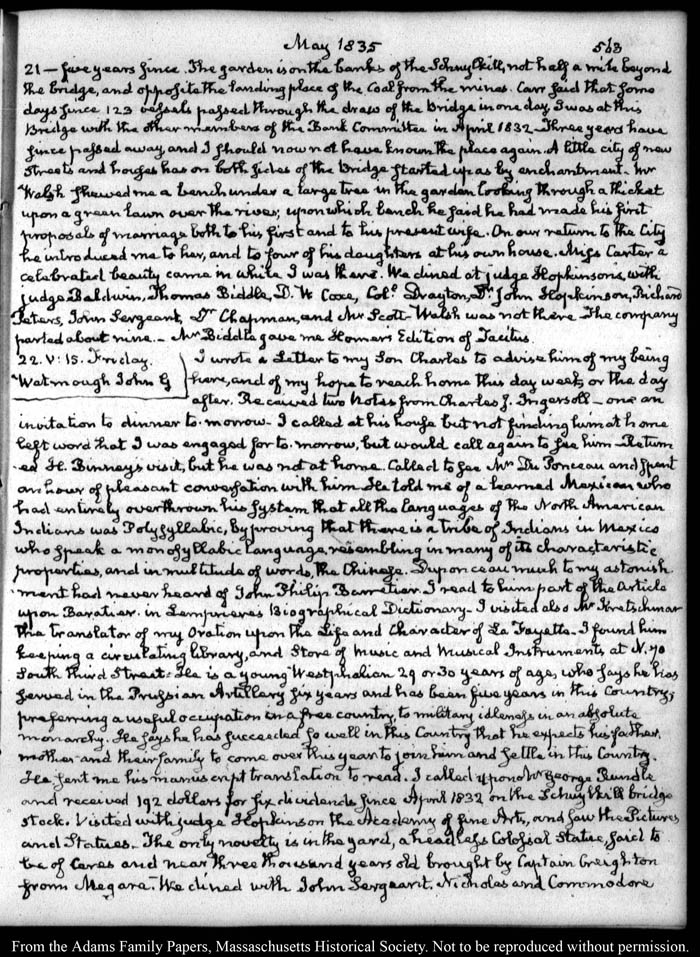 May 1835 563
21 — five years since. The garden is on the banks of the Schuylkill, not half a mile beyond
the bridge, and opposite the landing place of the Coal from the mines. Carr said that some
days since 123 vessels passed through the draw of the bridge in one day. I was at this
Bridge with the other members of the Bank Committee in April 1832 — Three years have
since passed away and I should now not have known the place again. A little city of new
streets and houses has on both sides of the Bridge started up as by enchantment — Mr
Walsh shewed me a bench under a large tree in the garden looking through a thicket
upon a green lawn over the river; upon which bench he said he had made his first
proposals of marriage both to his first and to his present wife. On our return to the City
he introduced me to her, and to four of his daughters at his own house. Miss Carter a
celebrated beauty came in while I was there. We dined at judge Hopkinson's, with
judge Baldwin, Thomas Biddle, D. W Coxe, Colo. Drayton, Dr. John Hopkinson, Richard
Peters, John Sergeant, Dr. Chapman, and Mr Scott — Walsh was not there. The company
parted about nine. — Mr Biddle gave me Homer's Edition of Tacitus.
22. V: 15. Friday. I wrote a Letter to my Son Charles to advise him of my being
Watmough John G here, and of my hope to reach home this day week, or the day
after. Received two Notes from Charles J. Ingersoll — one an
invitation to dinner to-morrow. I called at his house but not finding him at home
left word that I was engaged for to-morrow, but would call again to see him — Return
-ed H. Binney's visit, but he was not at home. Called to see Mr Du Ponceau and spent
an hour of pleasant conversation with him. He told me of a learned Mexican who
had entirely overthrown his system that all the languages of the North American
Indians was Polysyllabic, by proving that there is a tribe of Indians in Mexico
who speak a monosyllabic language, resembling in many of its characteristic
properties, and in multitude of words, the Chinese. Duponceau much to my astonish
-ment had never heard of John Philip Barretier. I read to him part of the Article
upon Baratier in Lempriere's Biographical Dictionary — I visited also Mr Kretschmar
the translator of my Oration upon the Life and Character of La Fayette — I found him
keeping a circulating library, and Store of Music and Musical Instruments at N. 70
South third Street: He is a young Westphalian 29 or 30 years of age, who says he has
served in the Prussian Artillery six years and has been five years in this Country;
preferring a useful occupation in a free country, to military idleness in an absolute
monarchy. He says he has succeeded so well in this Country that he expects his father,
mother and their family to come over this year to join him and settle in this Country.
He sent me his manuscript translation to read. I called upon Mr George Rundle
and received 192 dollars for six dividends since April 1832 on the Schuylkill bridge
stock. Visited with judge Hopkinson the Academy of fine Arts, and saw the Pictures
and Statues. The only novelty is in the yard, a headless Colossal Statue, said to
be of Ceres and near three thousand years old brought by Captain Creighton
from Megara. We dined with John Sergeant. Nicholas and Commodore
From the Adams Family Papers, Massachusetts Historical Society. Not to be reproduced without permission.